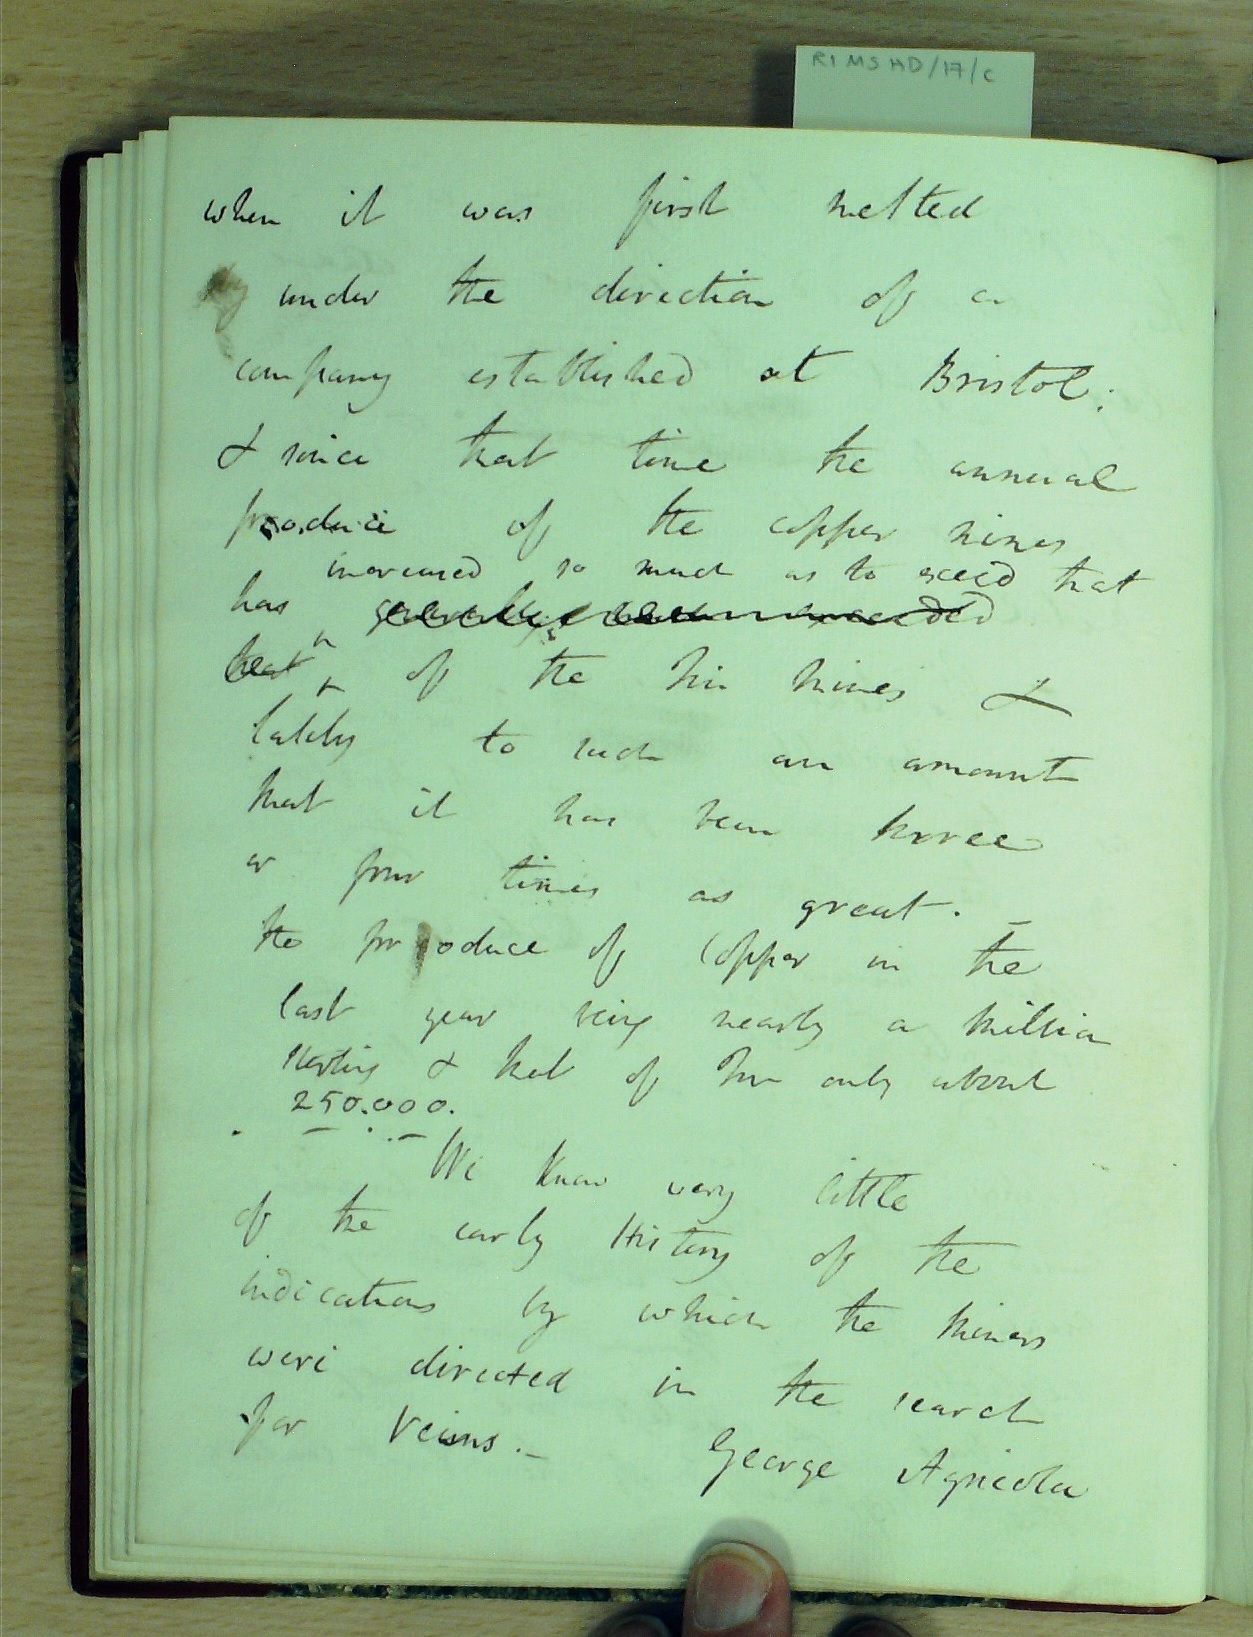 RI MS HD/17/C
when it was first melted
under the direction of a
company established at Bristol;
& since that time the annual
produce of the copper mines
increased so much as to exceed that
has generally been exceeded
that of the Tin mines &
lately to such an amount
that it has been three
or four times as great. _
the produce of Copper in the
last year being nearly a million
sterling & that of Tin only about
250.000.
We know very little
of the early History of the
indications by which the miners
were directed in the search
for Veins. _ George Agricola